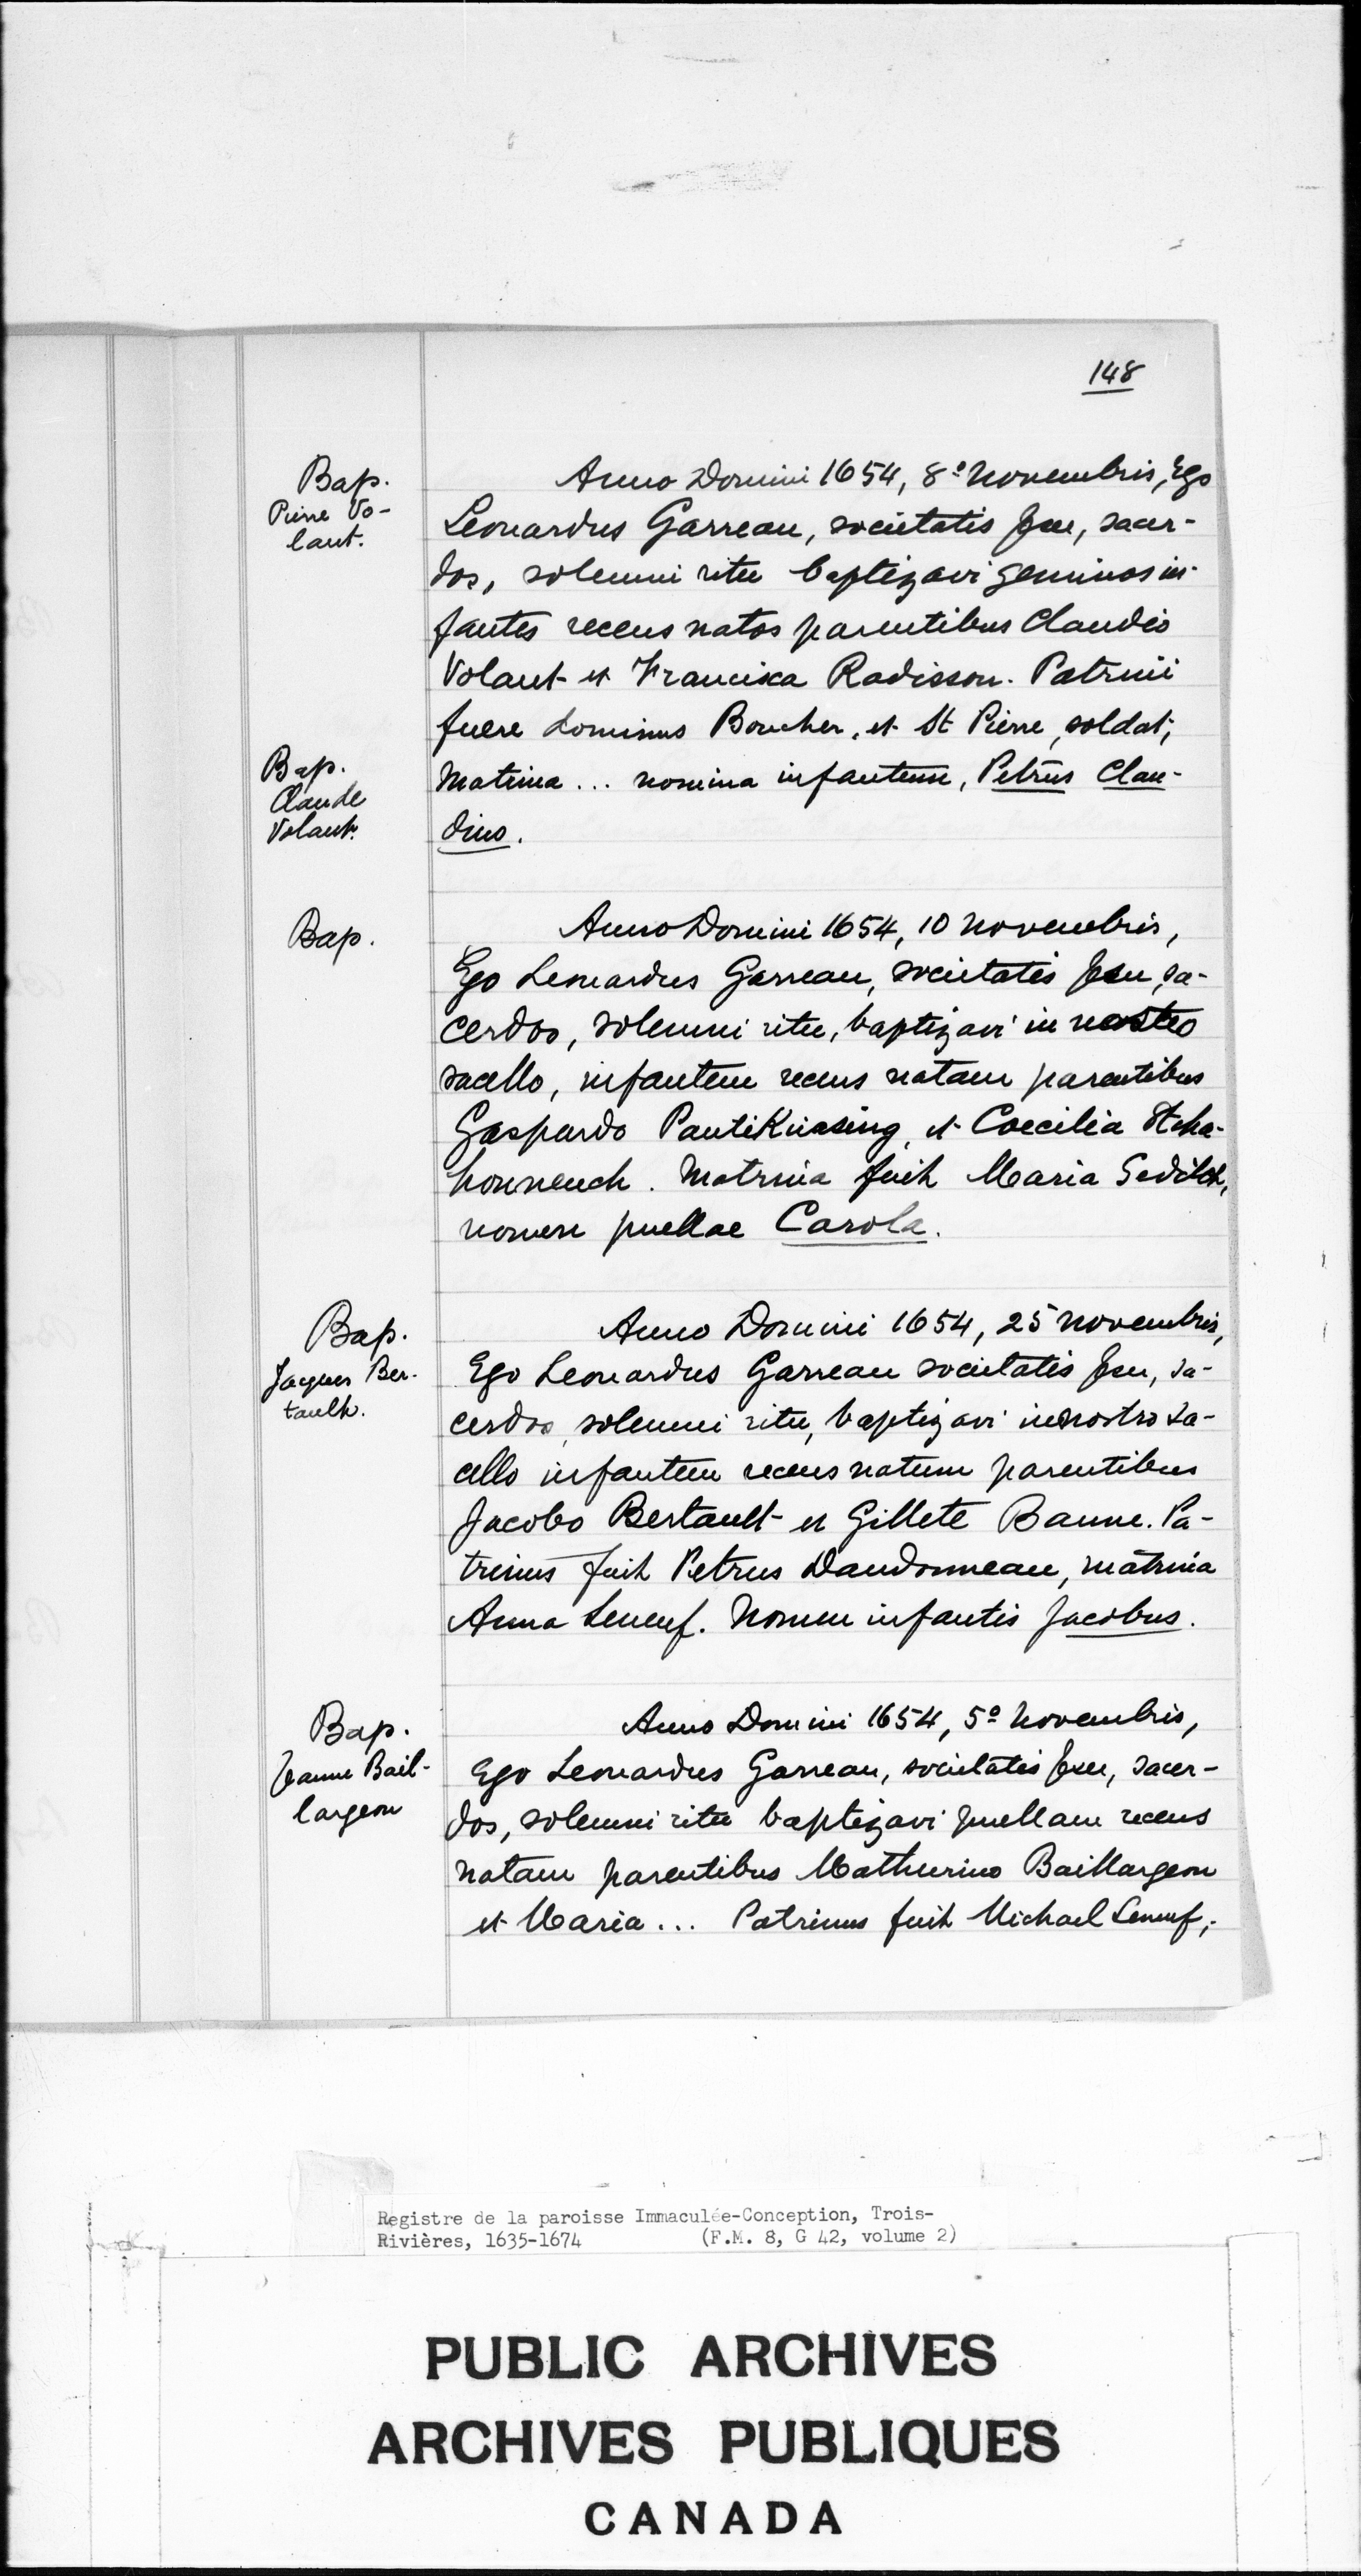 148
Bap.
Pierre Vo-
lant.
Anno Domini 1654, 8º Novembris, Ego
Leonardus Garreau, societatis Jesu, sacer-
dos, solemni ritu baptizavi geminos in-
fantes recens natos parentibus Claudio
Volant et Francisca Radisson. Patrini
fuere dominus Boucher, et St Pierre, soldat;
Bap.
Claude
Volant.
Matrina ... nomina infantum, Petrus Clau-
dius.
Bap.
Anno Domini 1654, 10 Novembris,
Ego Leonardus Garreau, societatis Jesu, sa-
cerdos, solemni ritu, baptizavi in nostro
sacello, infantem recens natam parentibus
Gaspardo PautiKuasing, et Coecilia
. Matrina fuit Maria
nomen puellae Carola.
Bap.
Jacques Ber-
tault.
Anno Domini 1654, 25 Novembris,
Ego Leonardus Garreau societatis Jesu, sa-
cerdos, solemni ritu, baptizavi in nostro sa-
cello infantem recens natum parentibus
Jacobo Bertault et Gillete Banne. Pa-
trinus fuit Petrus Dandonneau, matrina
Anna Leneuf. Nomen infantis Jacobus.
Bap.
Jeanne Bail-
largeon
Anno Domini 1654, 5º Novembris,
Ego Leonardus Garreau, societatis Jesu, sacer-
dos, solemni ritu baptizavi puellam recens
natam parentibus Mathurino Baillargeon
et Maria ... Patrinus fuit Michael Leneuf,
Registre de la paroisse Immaculée-Conception, Trois-
Rivières, 1635-1674 (F.M. 8, G 42, volume 2)
PUBLIC ARCHIVES
ARCHIVES PUBLIQUES
CANADA